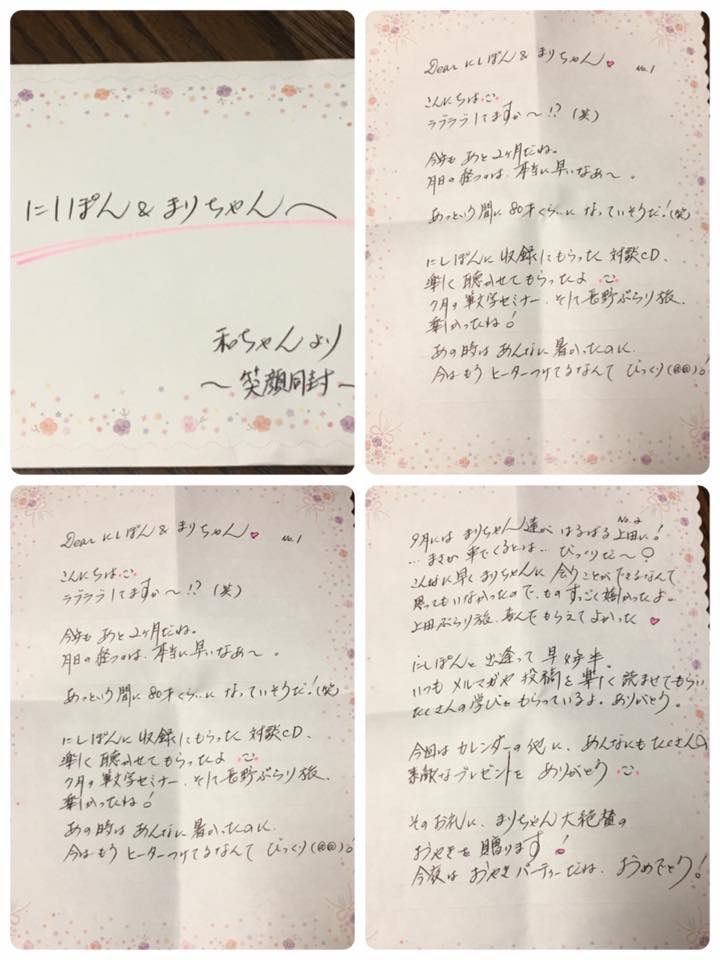 にしぽん&まりちゃんへ
和ちゃんより
〜笑顔同封〜
Dear にしぽん & まりちゃん No.1
こんにちは
ラブラブしてますか〜!?(笑)
今年もあと2ヶ月だね。
月日の経つのは、本当に早いなあ〜。
あっという間に80才くらいになっていそうだ!(笑)
にしぽんに収録してもらった対談CD、
楽しく聴かせてもらったよ
7月の筆文字セミナー、そして長野ぶらり旅、
楽しかったね!
あの時はあんなに暑かったのに、
今はもうヒーターつけてるなんてびっくり(@@)!
Dear にしぽん & まりちゃん No.1
こんにちは
ラブラブしてますか〜!?(笑)
今年もあと2ヶ月だね。
月日の経つのは、本当に早いなあ〜。
あっという間に80才くらいになっていそうだ!(笑)
にしぽんに収録してもらった対談CD、
楽しく聴かせてもらったよ
7月の筆文字セミナー、そして長野ぶらり旅、
楽しかったね!
あの時はあんなに暑かったのに、
今はもうヒーターつけてるなんてびっくり(@@)!
No.2
9月にはまりちゃん達がはるばる上田に!
…まさか車でくるとは…びっくりだ〜
こんなに早くまりちゃんに会うことができるなんて
思ってもいなかったので、ものすっごく嬉かったよ。
上田ぶらり旅、喜んでもらえてよかった
にしぽんと出逢って早
いつもメルマガや投稿を楽しく読ませてもらい
たくさんの学びをもらっているよ。ありがとう。
今回はカレンダーの他に、あんなにもたくさんの
素敵なプレゼントをありがとう
そのお礼に、まりちゃん大絶賛の
おやきを贈ります!
今夜はおやきパーティーだね、おめでとう!